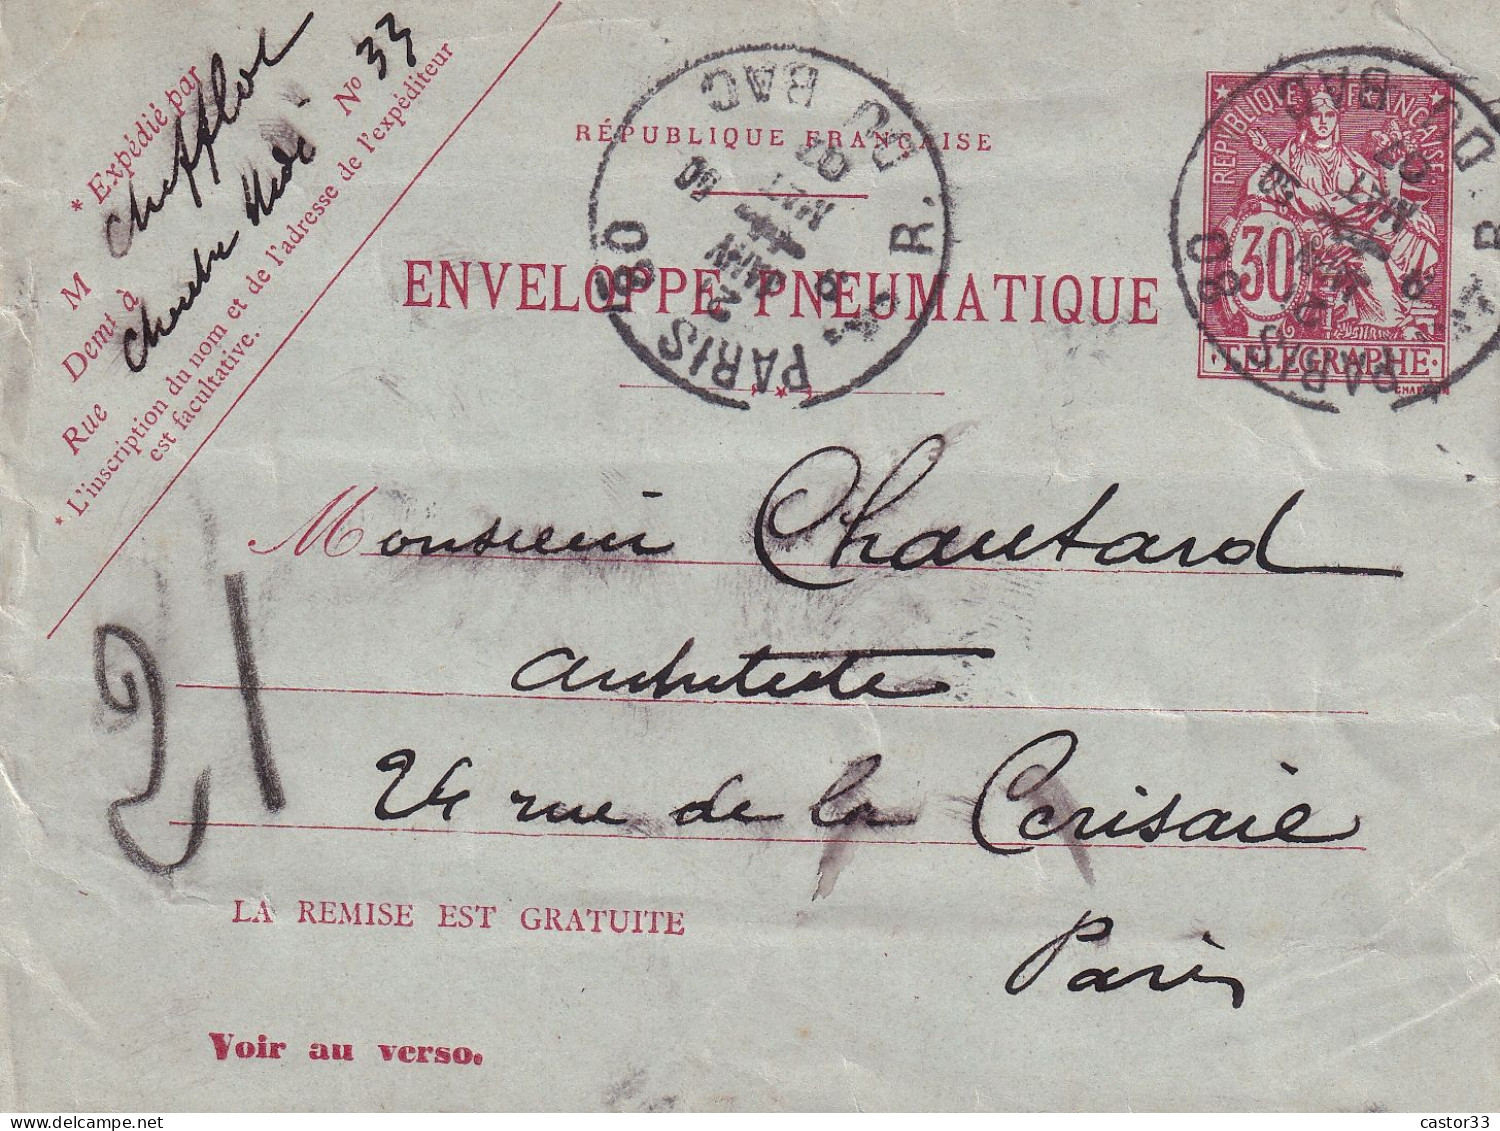 * Expédié par
M Chifflot
Demt à
Rue Cherche Midi No 33
* L'inscription du nom et de l'adresse de l'expéditeur
est facultative.
RÉPUBLIQUE FRANÇAISE
ENVELOPPE PNEUMATIQUE
PARIS 80 R. DU BAC
07
REPVBLIQVE FRANÇAISE
30
TELEGRAPHE
PARIS 80 R. DU BAC
07
Monsieur Chautard
Architecte
24 rue de la Cerisaie
Paris
21
LA REMISE EST GRATUITE
Voir au verso.
castor33